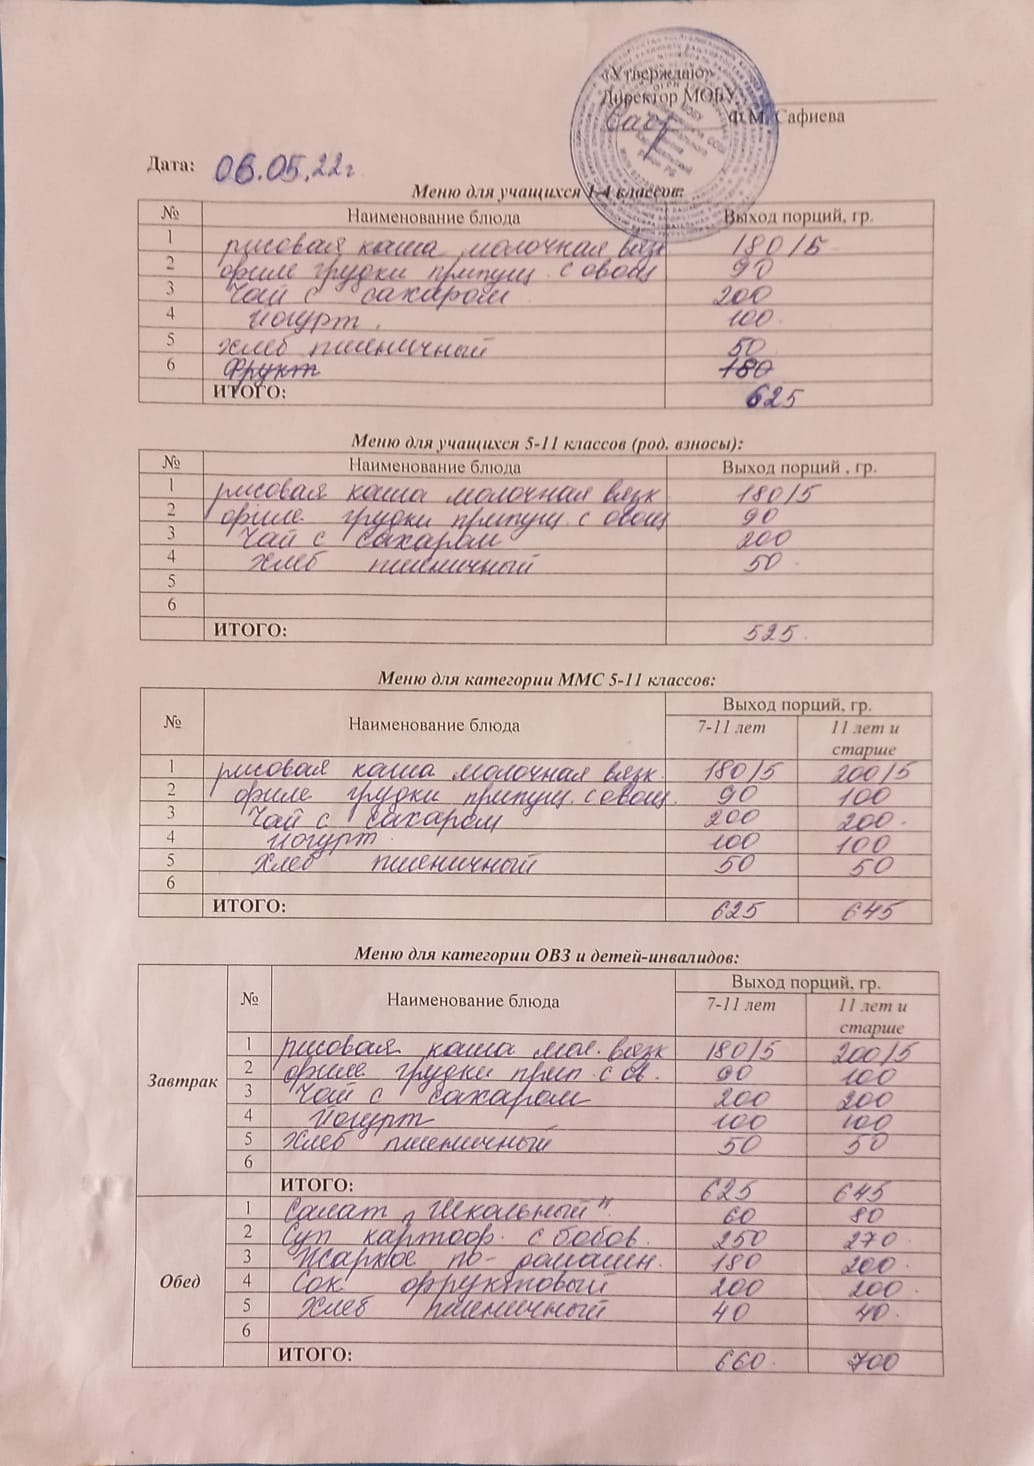 «Утверждаю»
Директор МОБУ
Ф.М. Сафиева
Дата: 06.05.22г
Меню для учащихся 1-4 классов:
№ Наименование блюда Выход порций, гр.
1 рисовая каша молочная вязк 180/5
2 филе грудки припущ. с овощ 90
3 Чай с сахаром 200
4 Йогурт. 100
5 Хлеб пшеничный 50
6 Фрукт 180
ИТОГО: 625
Меню для учащихся 5-11 классов (род. взносы):
№ Наименование блюда Выход порций , гр.
1 рисовая каша молочная вязк 180/5
2 филе грудки припущ. с овощ 90
3 Чай с сахаром 200
4 Хлеб пшеничный 50
5
6
ИТОГО: 525
Меню для категории ММС 5-11 классов:
№ Наименование блюда Выход порций, гр.
7-11 лет 11 лет и старше
1 рисовая каша молочная вязк. 180/5 200/5
2 филе грудки припущ. с овощ. 90 100
3 Чай с сахаром 200 200
4 Йогурт 100 100
5 Хлеб пшеничный 50 50
6
ИТОГО: 625 645
Меню для категории ОВЗ и детей-инвалидов:
№ Наименование блюда Выход порций, гр.
7-11 лет 11 лет и старше
Завтрак
1 рисовая каша мол. вязк 180/5 200/5
2 филе грудки прип. с ов. 90 100
3 Чай с сахаром 200 200
4 Йогурт 100 100
5 Хлеб пшеничный 50 50
6
ИТОГО: 625 645
Обед
1 Салат „Школьный" 60 80
2 Суп картоф. с бобов. 250 270
3 Жаркое по-домашн. 180 200
4 Сок фруктовый 200 200
5 Хлеб пшеничный 40 40
6
ИТОГО: 660 700